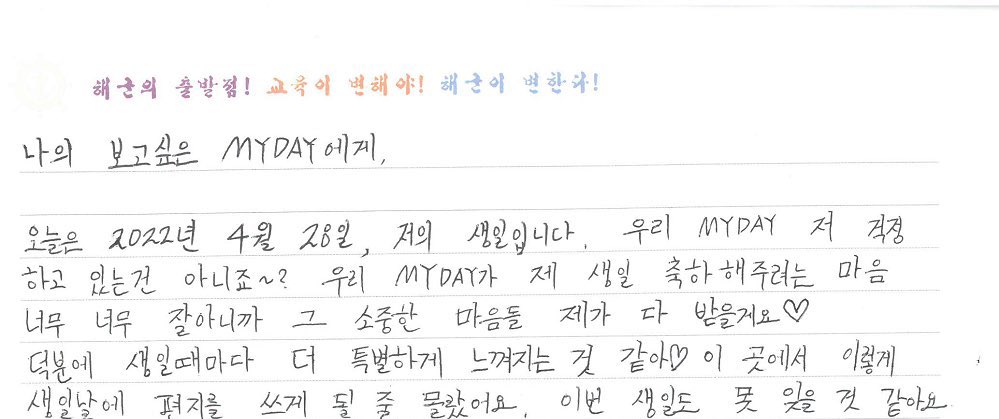 해군의 출발점! 교육이 변해야! 해군이 변한다!
나의 보고싶은 MYDAY에게,
오늘은 2022년 4월 28일, 저의 생일입니다. 우리 MYDAY 저 걱정
하고 있는건 아니죠~? 우리 MYDAY가 제 생일 축하해주려는 마음
너무 너무 잘아니까 그 소중한 마음들 제가 다 받을게요♡
덕분에 생일때마다 더 특별하게 느껴지는 것 같아♡ 이 곳에서 이렇게
생일날에 편지를 쓰게 될 줄 몰랐어요. 이번 생일도 못 잊을 것 같아요